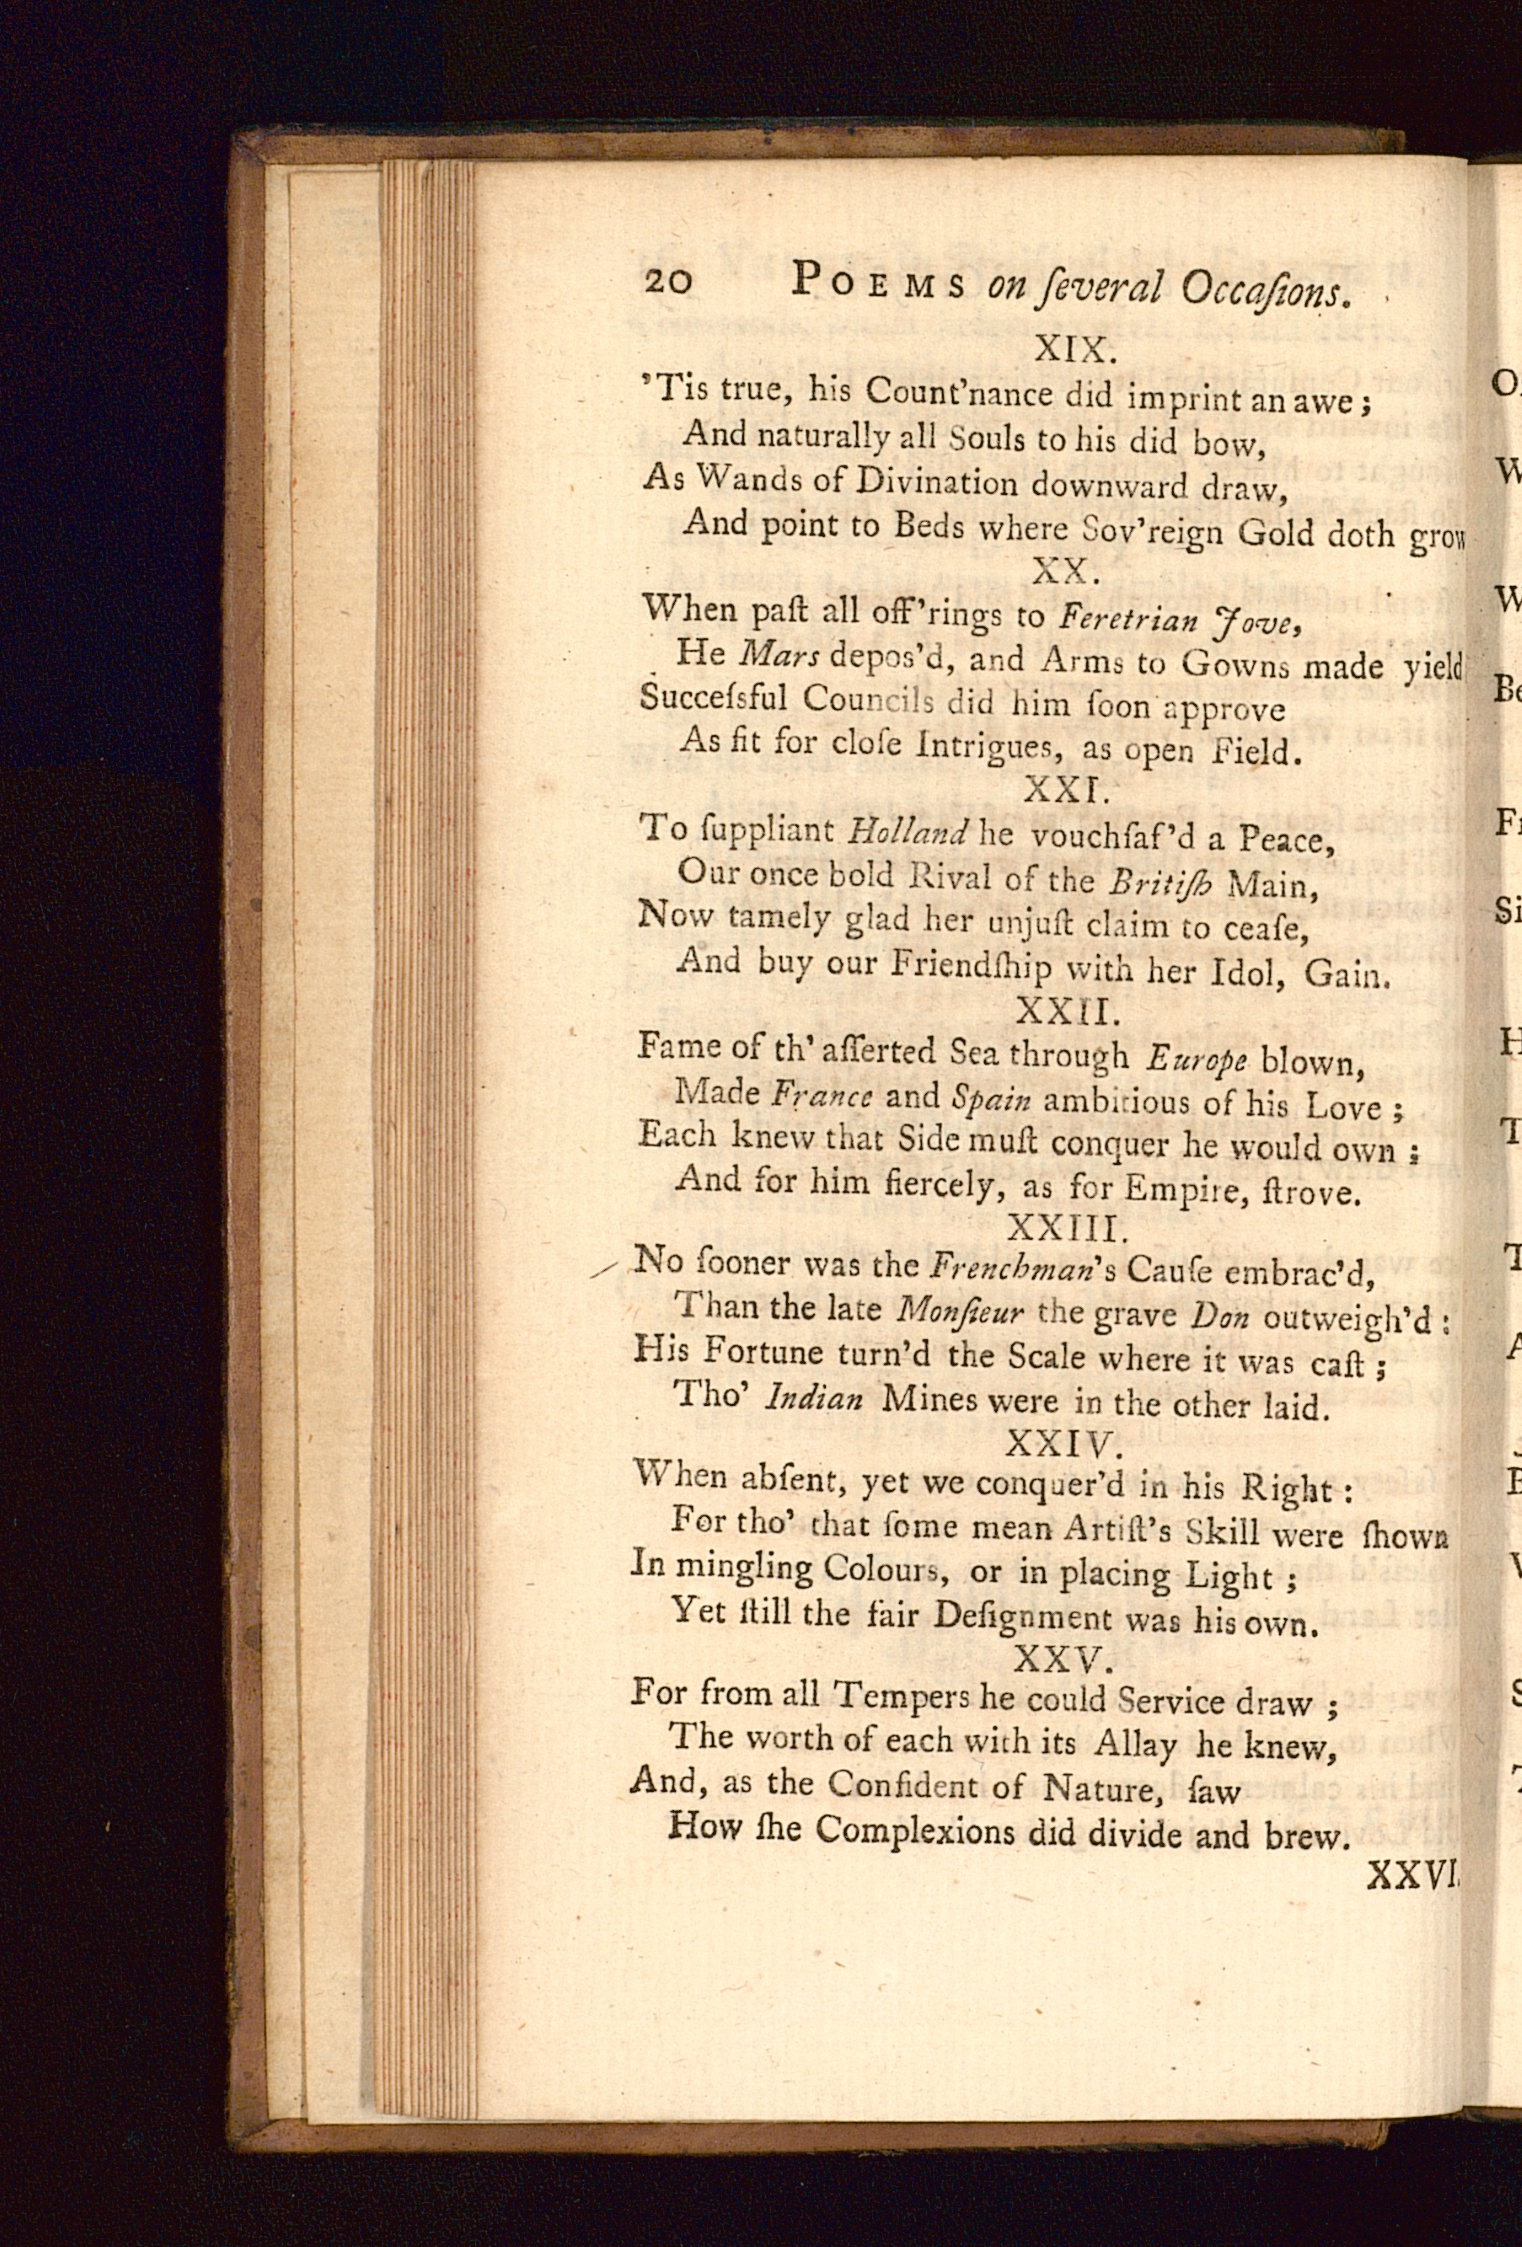 20 POEMS on ſeveral Occaſions.
XIX.
'Tis true, his Count'nance did imprint an awe;
And naturally all Souls to his did bow,
As Wands of Divination downward draw,
And point to Beds where Sov'reign Gold doth grow
XX.
When paſt all off'rings to Feretrian Jove,
He Mars depos'd, and Arms to Gowns made yield
Succeſsful Councils did him ſoon approve
As fit for cloſe Intrigues, as open Field.
XXI.
To ſuppliant Holland he vouchſaf'd a Peace,
Our once bold Rival of the Britiſh Main,
Now tamely glad her unjuſt claim to ceaſe,
And buy our Friendſhip with her Idol, Gain.
XXII.
Fame of th' aſſerted Sea through Europe blown,
Made France and Spain ambitious of his Love;
Each knew that Side muſt conquer he would own;
And for him fiercely, as for Empire, ſtrove.
XXIII.
No ſooner was the Frenchman's Cauſe embrac'd,
Than the late Monſieur the grave Don outweigh'd:
His Fortune turn'd the Scale where it was caſt;
Tho' Indian Mines were in the other laid.
XXIV.
When abſent, yet we conquer'd in his Right:
For tho' that ſome mean Artiſt's Skill were ſhown
In mingling Colours, or in placing Light;
Yet ſtill the fair Deſignment was his own.
XXV.
For from all Tempers he could Service draw;
The worth of each with its Allay he knew,
And, as the Confident of Nature, ſaw
How ſhe Complexions did divide and brew.
XXVI.